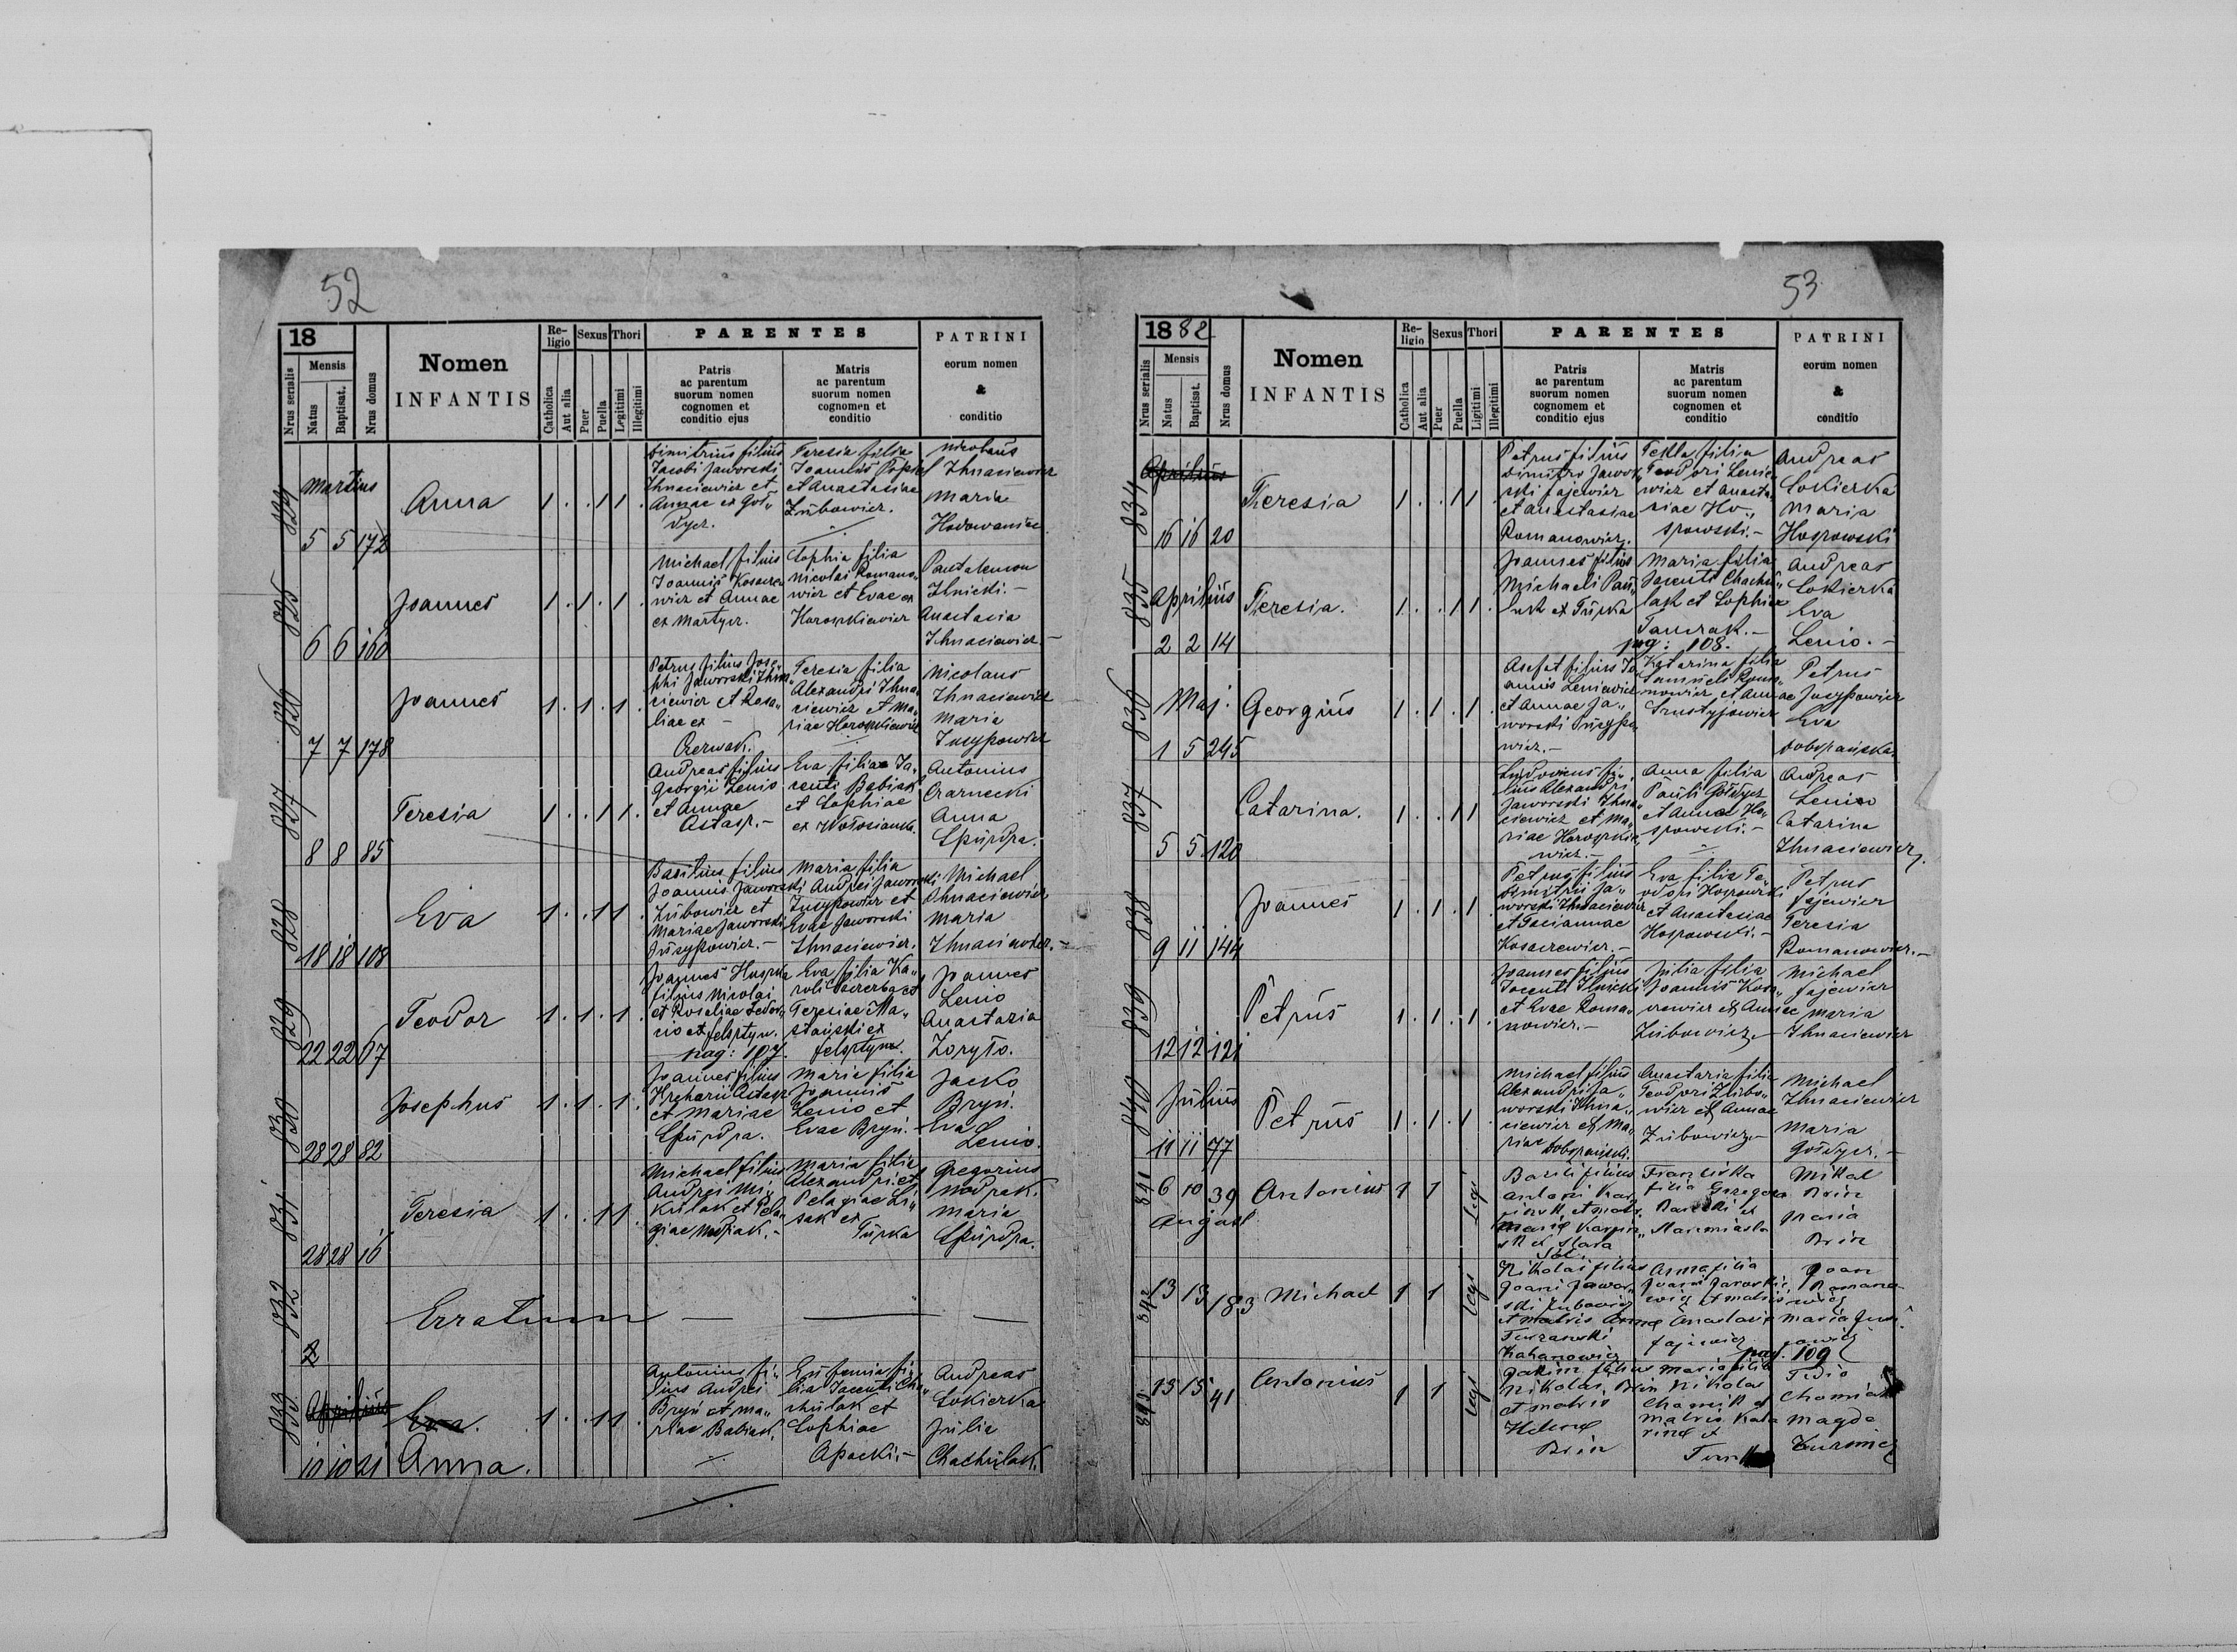 52
18
Nrus serialis
Mensis
Natus
Baptisat.
Nrus domus
Nomen
INFANTIS
Re-
ligio
Catholica
Aut alia
Sexus
Puer
Puella
Thori
Legitimi
Illegitimi
PARENTES
Patris
ac parentum
suorum nomen
cognomen et
conditio ejus
Matris
ac parentum
suorum nomen
cognomen et
conditio
PATRINI
eorum nomen
&
conditio
824
Martius
5 5 172
Anna
1 . . 1 1 .
Dimitrius filius
Jacobi Jaworski
Ihnaciewicz et
Annae ex Goł„
dycz.
Teresia filia
Joannis Popiel
et Anastasiae
Zubowicz.
Nicolaus
Ihnaciewicz
Maria
Hodowaniec
825
6 6 160
Joannes
1 . 1 . 1 .
Michael filius
Joannis Kosacze
wicz et Annae
ex Martycz.
Sophia filia
Nicolai Romano„
wicz et Evae ex
Horoszkiewicz
Pantalemon
Ilnicki.-
Anastasia
Ihnaciewicz.-
826
7 7 178
Joannes
1 . 1 . 1 .
Petrus filius Jose„
phi Jaworski Ihna„
ciewicz et Rosa„
liae ex -
Czerwak.
Teresia filia
Alexandri Ihna„
ciewicz et Ma„
riae Horoszkiewicz
Nicolaus
Ihnaciewicz
Maria
Jusypowicz
827
8 8 85
Teresia
1 . . 1 1 .
Andreas filius
Georgii Lenio
et Annae
Astasz.-
Eva filia Ja„
centi Babiak
et Sophiae
ex Wołosianka.
Antonius
Czarnecki
Anna
Szurdza.
828
18 18 108
Eva
1 . . 1 1 .
Basilius filius
Joannis Jaworski
Zubowicz et
Mariae Jaworski
Jusypowicz.-
Maria filia
Andrei Jaworski
Jusypowicz et
Evae Jaworski
Ihnaciewicz.
Michael
Ihnaciewicz
Maria
Ihnaciewicz.-
829
22 22 67
Teodor
1 . 1 . 1 .
Joannes
filius Nicolai
et Rosaliae
ex felsztyn.
pag: 107.
Eva filia Ka„
roli Saczerba et
Teresiae Ma„
stański ex
felsztyn.
Joannes
Lenio
Anastazia
Zoryło.
830
28 28 82
Josephus
1 . 1 . 1 .
Joannes filius
Hreharii Astasz
et Mariae
Szurdza.
Maria filia
Joannis
Lenio et
Evae Bryń.
Jacko
Bryń.
Eva
Lenio.
831
28 28 16
Teresia
1 . . 1 1 .
Michael filius
Andrei Mi„
kulak et Pela„
giae Modrak.-
Maria filia
Alexandri et
Pelagiae Li„
sak ex
Turka
Gregorius
Modrak.
Maria
Szurdza.
832
2
Erratum
833
Aprilius
10 10 21
Eva.
Anna.
1 . . 1 1 .
Antonius fi„
lius Andrei
Bryń et Ma„
riae Babiak.
Eufemia fi„
lia Jacenti Cha„
chulak et
Sophiae
Apacki.-
Andreas
Łokierka
Julia
Chachulak.
53
1882
Nrus serialis
Mensis
Natus
Baptisat.
Nrus domus
Nomen
INFANTIS
Re-
ligio
Catholica
Aut alia
Sexus
Puer
Puella
Thori
Ligitimi
Illegitimi
PARENTES
Patris
ac parentum
suorum nomen
cognomem et
conditio ejus
Matris
ac parentum
suorum nomen
cognomen et
conditio
PATRINI
eorum nomen
&
conditio
834
Aprilius
16 16 20
Theresia
1 . . 1 1 .
Petrus filius
Dimitro Jawor„
ski fajewicz
et Anastasiae
Romanowicz.
Tekla filia
Teodori Lenie„
wicz et Anasta„
siae Ho„
szowski.-
Andreas
Łokierka
Maria
Hoszowski
835
Aprilius
2 2 14
Theresia.
1 . . 1 1 .
Joannes filius
Michaeli Paw„
luk ex Turka
Maria filia
Jacenti Chachu„
lak et Sophiae
pag: 108.
Andreas
Łokierka
Eva
Lenio.-
836
Maj.
1 5 245
Georgius
1 . 1 . 1 .
Asafat filius Jo
annis Leniewicz
et Annae Ja„
worski Jusypo„
wicz.-
Katarina filia
Samueli Roma„
nowicz et Annae
Petrus
Jusypowicz
Eva
Dobrzańska.
837
5 5 120
Catarina.
1 . . 1 1
Ludovicus fi„
lius Alexandri
Jaworski Ihna„
ciewicz et Ma„
riae Horoszkie„
wicz.-
Anna filia
Pauli Gołdycz
et Annae Ho„
szowski.-
Andreas
Lenio
Catarina
Ihnaciewicz.
838
9 11 144
Joannes
1 . 1 . 1 .
Petrus filius
Dimitrii Ja„
worski Ihnaciewicz
et Taciannae
Kosaczewicz.-
Eva filia Te„
odori Hoszowski
et Anastasiae
Hoszowski.-
Petrus
fajewicz
Teresia
Romanowicz.-
839
12 12 121
Petrus
1 . 1 . 1 .
Joannes filius
Jacenti Ilnicki
et Evae Roma„
nowicz.-
Julia filia
Joannis Kosa„
czewicz et Annae
Zubowicz.-
Michael
fajewicz
Maria
Ihnaciewicz
840
Julius
11 11 77
Petrus
1 . 1 . 1 .
Michael filius
Alexandri Ja„
worski Ihna„
ciewicz et Ma„
riae Dobrzański.
Anastazia filia
Teodori Zubo„
wicz et Annae
Zubowicz.-
Michael
Ihnaciewicz
Maria
Gołdycz.-
841
6 10 39
August
Antonius
1 1
Legi
Bazili filius
et Stara
Sol
filia Grzegorz
Mikal
Brin
Maria
Brin
842
13 13 183
Michael
1 1
legi
Nikolai filius
Joani Jawor„
ski Zubowicz
et matris Anna
Kahanowicz
Anna filia
fajewicz
pag. 109
Joan
Romano
wicz
843
13 15 41
Antonius
1 1
legi
filius
Nikolai Brin
et matris
Helena
Brin
Maria filia
Nikolai
Chamik et
matris Kata
rina et
Magda